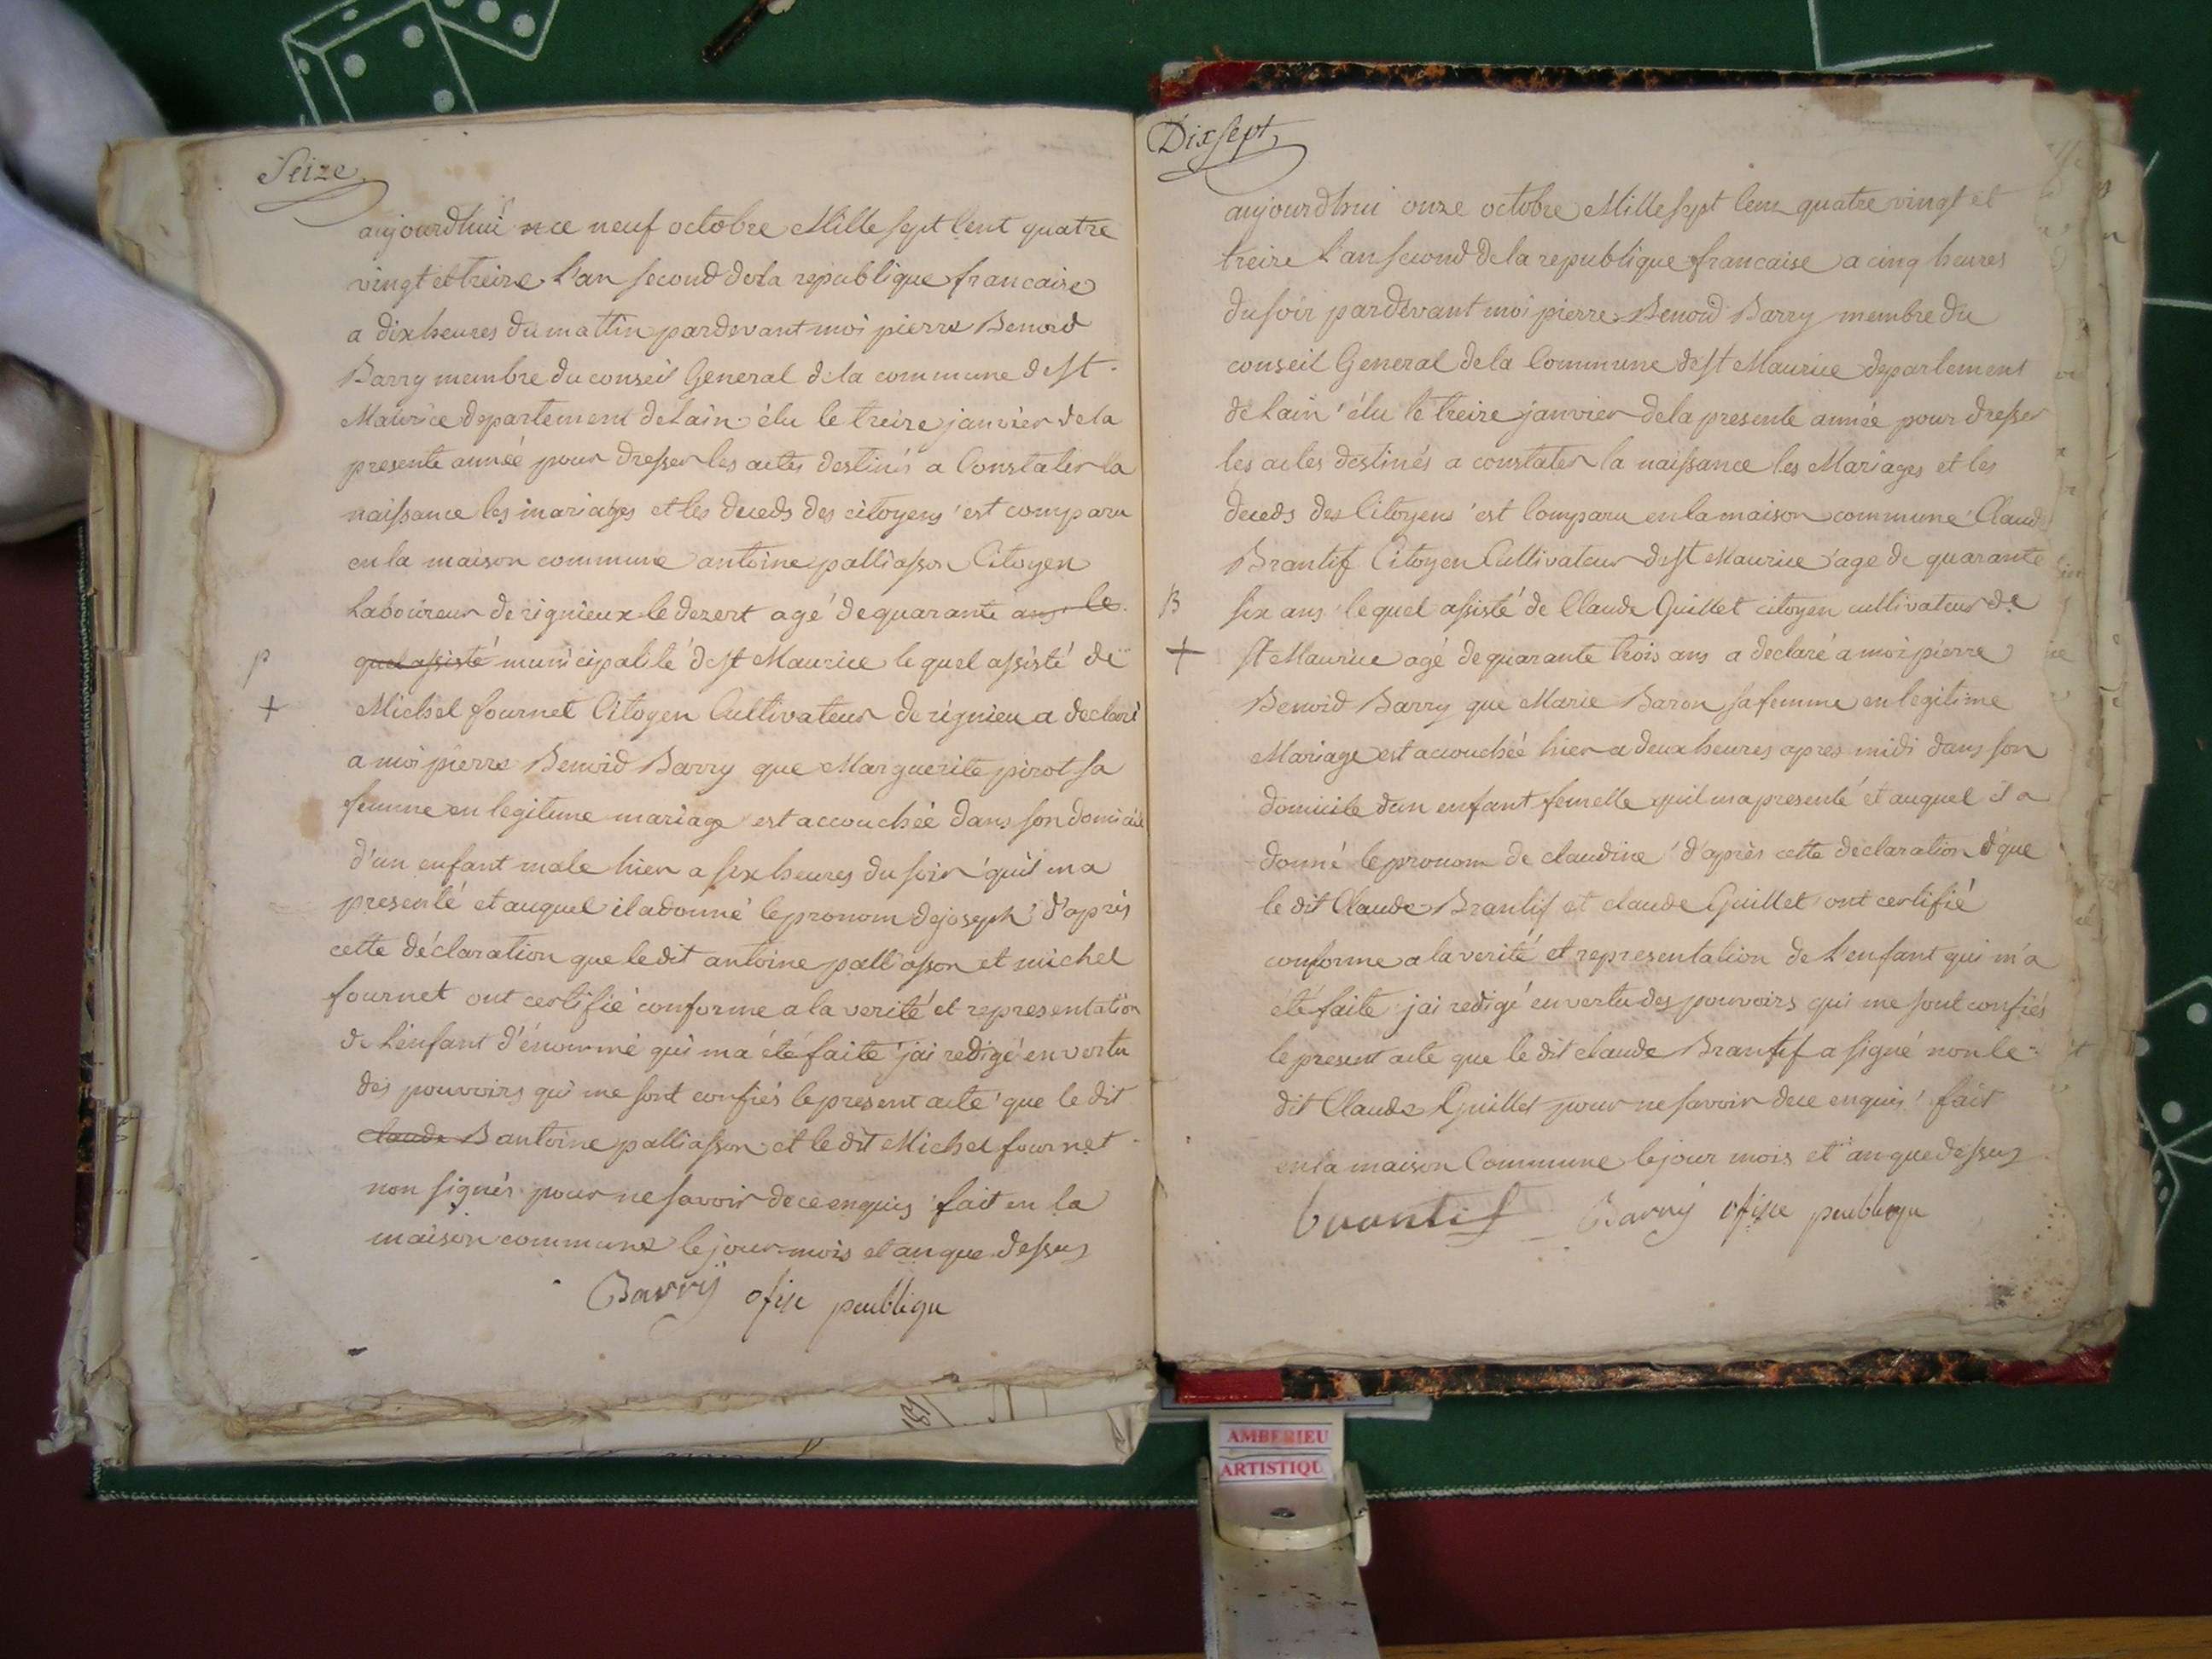 Seize
aujourdhui ce neuf octobre Mille sept Cent quatre
vingt et treize L'an second dela republique francaise
a dix heures du mattin pardevant moi pierre Benoid
Barry membre du conseil General dela commune de st
Maurice departement de Lain élu le treize janvier dela
presente année pour dresser les actes destinés a Constater la
naissance les mariages et les deceds des citoyens est comparu
en la maison commune antoine palliasson Citoyen
Laboureur de rignieux le dezert agé de quarante ans le
quel assisté municipalité de st Maurice le quel assisté de
p
+
Michel fournet Citoyen Cultivateur de rignieu a declaré
a moi pierre Benoid Barry que Marguerite pirot sa
femme en legitime mariage est accouchée dans son domicile
d'un enfant male hier a six heures du soir quil ma
presenté et auquel il a donné le pronom de joseph d'après
cette déclaration que le dit antoine palliasson et michel
fournet ont certifié conforme a la verité et representation
de L'enfant d'énommé qui ma été faite jai redigé en vertu
des pouvoirs qui me sont confiés le present acte que le dit
claude B antoine palliasson et le dit Michel fournet
non signés pour ne savoir de ce enquis fait en la
maison commune le jour mois et an que dessus
Barrÿ ofise peubliqu
Dix sept
aujourdhui onze octobre Mille sept Cent quatre vingt et
treize L'an second de la republique francaise a cinq heures
du soir pardevant moi pierre Benoid Barry membre du
conseil General de la Commune de st Maurice departement
de Lain élu le treize janvier dela presente année pour dresser
les actes destinés a constater la naissance les Mariages et les
deceds des Citoyens est Comparu en la maison commune Claude
Brantif Citoyen Cultivateur de st Maurice age de quarante
B
six ans le quel assisté de Claude Guillet citoyen cultivateur de
+
st Maurice agé de quarante trois ans a declaré a moi pierre
Benoid Barry que Marie Baron sa femme en legitime
Mariage est accouchée hier a deux heures apres midi dans son
domicile d'un enfant femelle quil ma presenté et auquel il a
donné le pronom de claudine d'après cette déclaration que
le dit Claude Brantif et claude Guillet ont certifié
conforme a la verité et representation de L'enfant qui m'a
été faite jai redigé en vertu des pouvoirs qui me sont confiés
le present acte que le dit claude Brantif a signé non le
dit Claude Guillet pour ne savoir de ce enquis fait
en la maison Commune le jour mois et an que dessus
brantif Barrÿ ofise peubliqu
AMBERIEU
ARTISTIQU